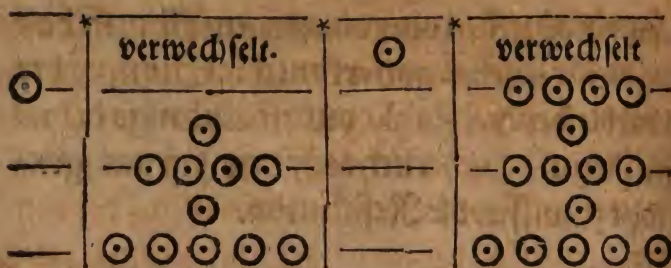 verwechselt.
verwechselt